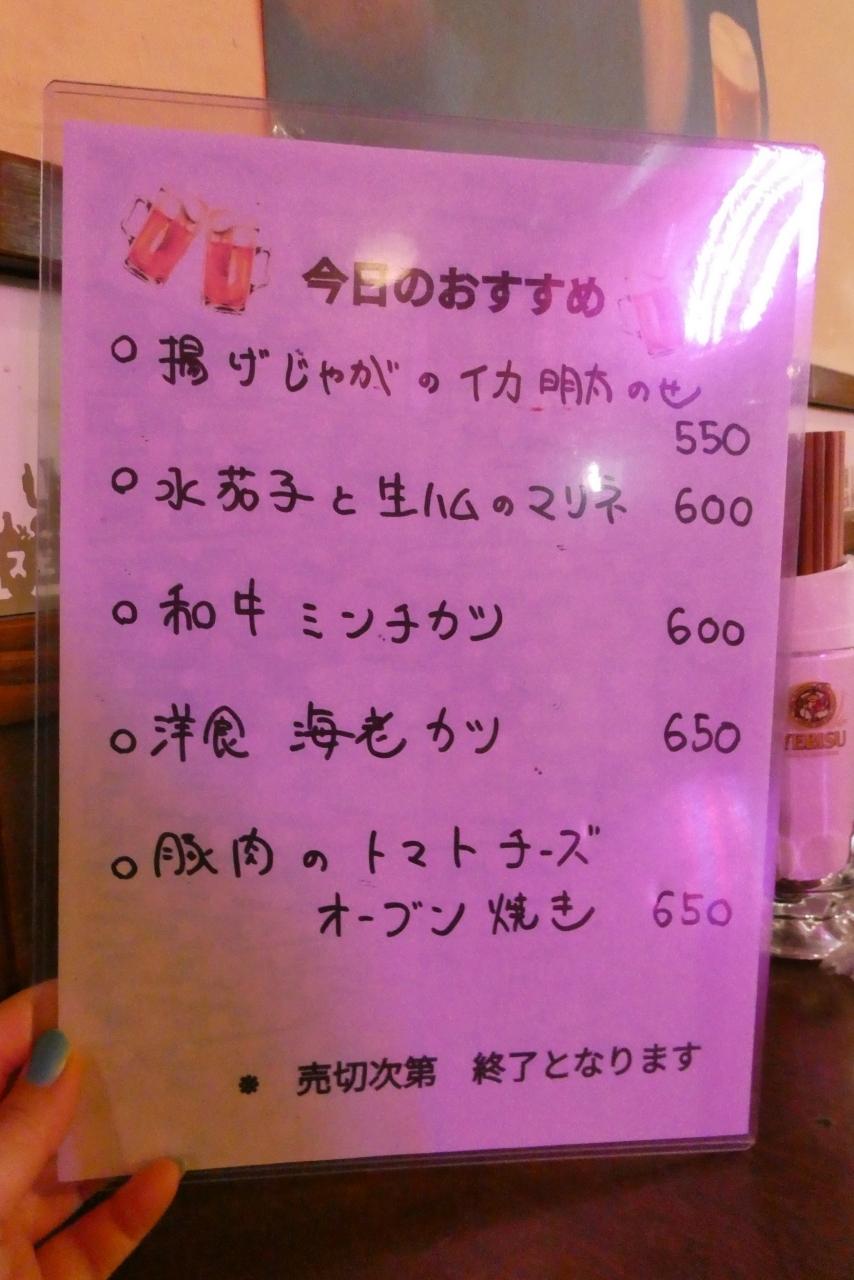 今日のおすすめ
○ 揚げじゃがのイカ明太のせ
550
○ 水茄子と生ハムのマリネ 600
○ 和牛ミンチカツ 600
○ 洋食 海老カツ 650
○ 豚肉のトマトチーズ
オーブン焼き 650
※ 売切次第 終了となります
YEBISU